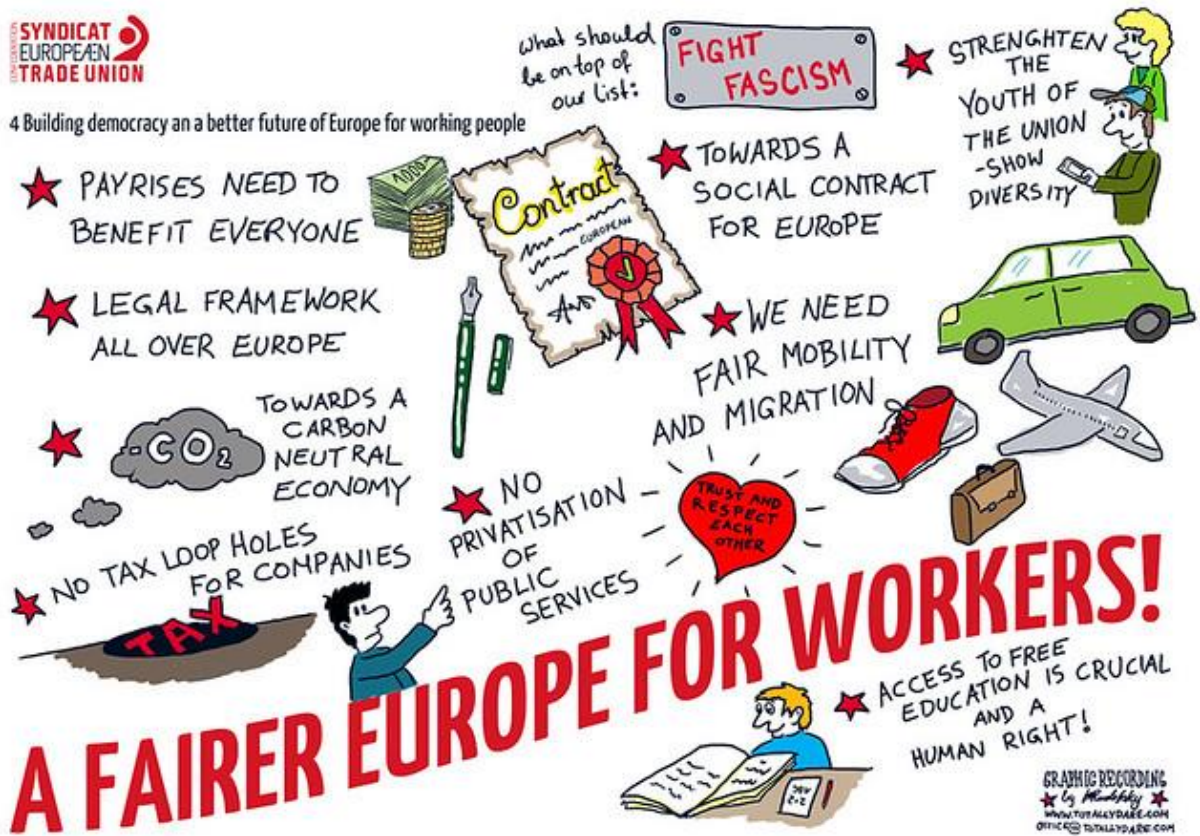 CONFEDERATION
SYNDICAT
EUROPEAN
TRADE UNION
4 Building democracy an a better future of Europe for working people
what should
be on top of
our list:
FIGHT
FASCISM
STRENGHTEN
THE
YOUTH OF
THE UNION
-SHOW
DIVERSITY
PAYRISES NEED TO
BENEFIT EVERYONE
1000.-
Contract
EUROPEAN
TOWARDS A
SOCIAL CONTRACT
FOR EUROPE
LEGAL FRAMEWORK
ALL OVER EUROPE
WE NEED
FAIR MOBILITY
AND MIGRATION
-CO₂
TOWARDS A
CARBON
NEUTRAL
ECONOMY
NO
PRIVATISATION
OF
PUBLIC
SERVICES
TRUST AND
RESPECT
EACH
OTHER
NO TAX LOOP HOLES
FOR COMPANIES
TAX
A FAIRER EUROPE FOR WORKERS!
ACCESS TO FREE
EDUCATION IS CRUCIAL
AND A
HUMAN RIGHT!
GRAPHIC RECORDING
by
WWW.TOTALLYDARE.COM
OFFICE@TOTALLYDARE.COM